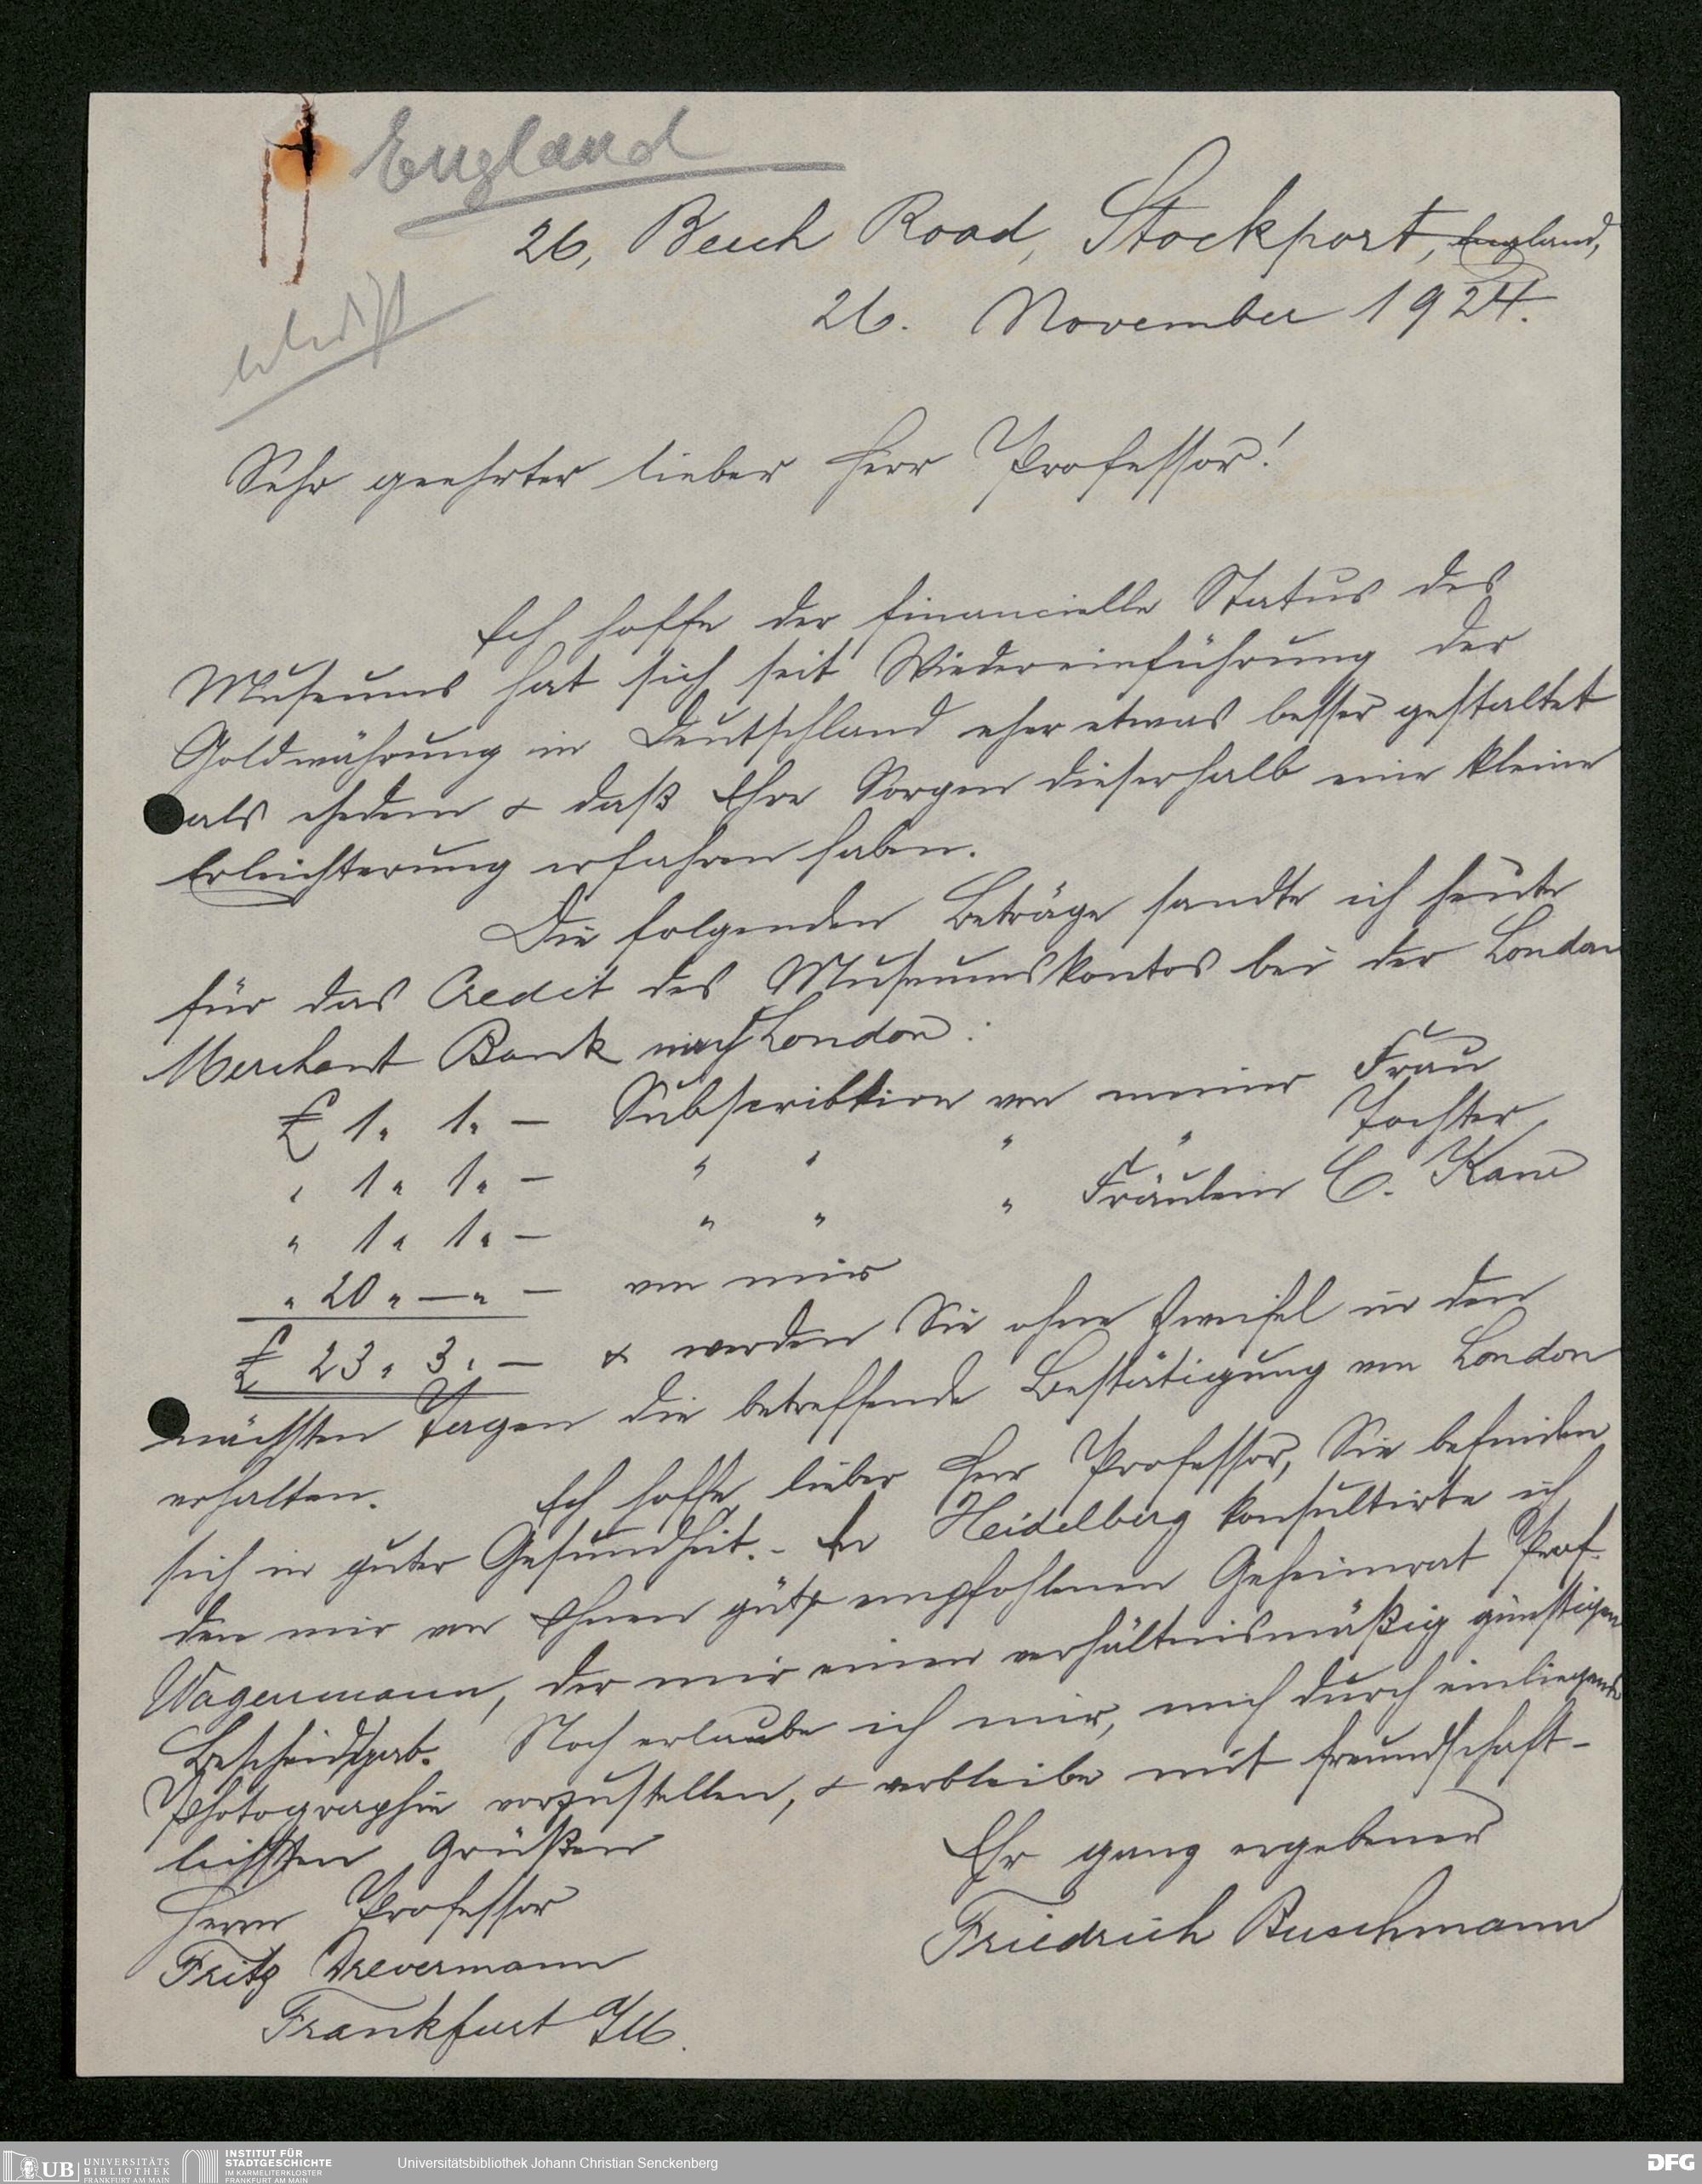 England
26, Beech Road, Stockport, England,
26. November 1924.
Sehr geehrter lieber Herr Professor!
Ich hoffe der financielle Status des
Museums hat sich seit Wiedereinführung der
Goldwährung in Deutschland eher etwas besser gestaltet
als ehedem & daß Ihre Sorgen dieserhalb eine kleine
Erleichterung erfahren haben.
Die folgenden Beträge sandte ich heute
für das Credit des Museumskontos bei der London
Merchant Bank nach London:
£ 1. 1. — Subscribtion von meiner Frau
" 1. 1. — " " " " Tochter
" 1. 1. — " " " Fräulein C. Kane
" 20 " — " — von mir
£ 23. 3. — & werden Sie ohne Zweifel in den
nächsten Tagen die betreffende Bestätigung von London
erhalten. Ich hoffe, lieber Herr Professor, Sie befinden
sich in guter Gesundheit. - In Heidelberg konsultirte ich
den mir von Ihnen gütigst empfohlenen Geheimrat Prof.
Wagenmann, der mir einen verhältnismäßig günstigen
Bescheid gab. Noch erlaube ich mir, mich durch einliegende
Photographie vorzustellen, & verbleibe mit freundschaft-
lichsten Grüßen
Ihr ganz ergebener
Friedrich Buschmann
Herrn Professor
Fritz Drevermann
Frankfurt a/M.
UB UNIVERSITÄTS
BIBLIOTHEK
FRANKFURT AM MAIN
INSTITUT FÜR
STADTGESCHICHTE
IM KARMELITERKLOSTER
FRANKFURT AM MAIN
Universitätsbibliothek Johann Christian Senckenberg
DFG